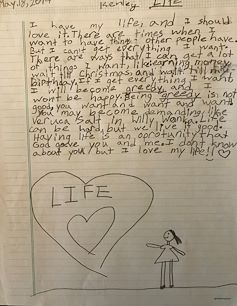 May 18, 2014 Life
I have my life, and I should
love it. There are times when I
want to have things other people have.
But I can't get everything I want.
There are ways that I can get a lot
of things I want, like earning money
wait till Christmas, and wait till my
birthday. If I get everything I want
I will become greedy and I
won't be happy. Being greedy is not
good, you want and want and want.
You may become demanding like
Veruca Salt in Willy Wonka. Life
can be hard, but we live it good.
Having life is an oportunity that
God gave you and me. I don't know
about you but I love my life!!
LIFE